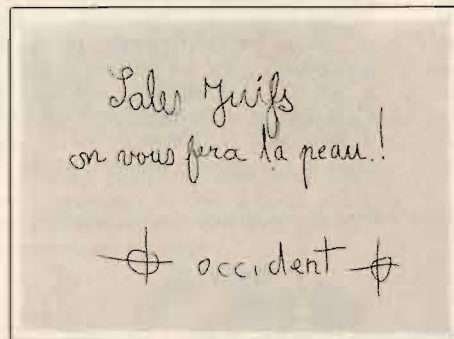 Sales Juifs
on vous fera la peau!
occident